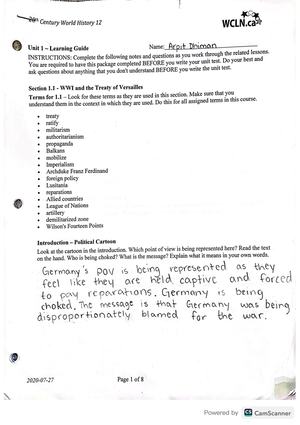 20th Century World History 12
WCLN.ca
Unit 1 – Learning Guide
Name: Arpit Dhiman
INSTRUCTIONS: Complete the following notes and questions as you work through the related lessons.
You are required to have this package completed BEFORE you write your unit test. Do your best and
ask questions about anything that you don't understand BEFORE you write the unit test.
Section 1.1 - WWI and the Treaty of Versailles
Terms for 1.1 – Look for these terms as they are used in this section. Make sure that you
understand them in the context in which they are used. Do this for all assigned terms in this course.
• treaty
• ratify
• militarism
• authoritarianism
• propaganda
• Balkans
• mobilize
• Imperialism
• Archduke Franz Ferdinand
• foreign policy
• Lusitania
• reparations
• Allied countries
• League of Nations
• artillery
• demilitarized zone
• Wilson's Fourteen Points
Introduction – Political Cartoon
Look at the cartoon in the introduction. Which point of view is being represented here? Read the text
on the hand. Who is being choked? What is the message? Explain what it means in your own words.
Germany's POV is being represented as they
feel like they are held captive and forced
to pay reparations. Germany is being
choked. The message is that Germany was being
disproportionately blamed for the war.
2020-07-27
Page 1 of 8
Powered by CS CamScanner